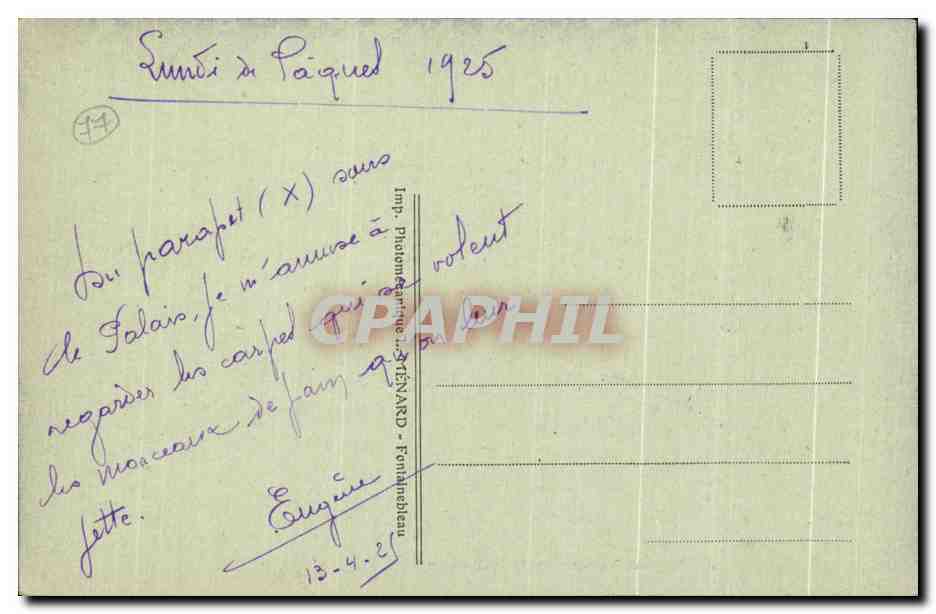 Lundi de Pâques 1925
77
Du parapet (X) sous
le Palais, je m'amuse à
regarder les carpes qui se volent
les morceaux de pain qu'on leur
jette.
Eugène
13-4-25
Imp. Photomécanique L. MÉNARD - Fontainebleau
CPAPHIL